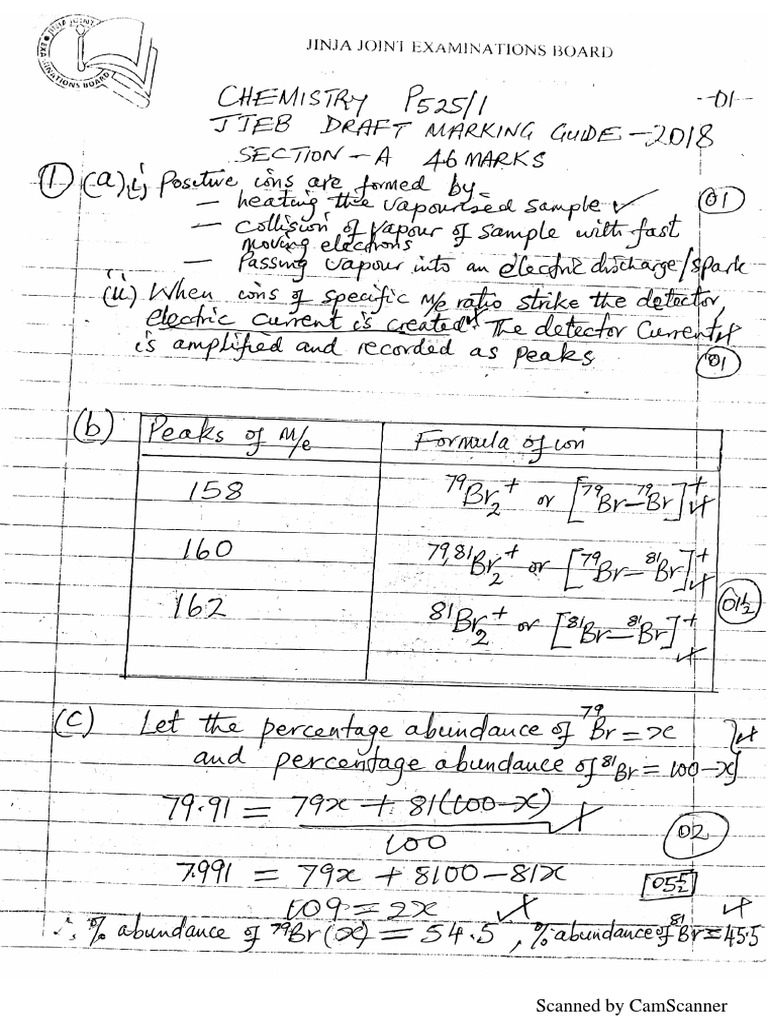 JINJA JOINT EXAMINATIONS BOARD
JINJA JOINT
EXAMINATIONS BOARD
CHEMISTRY P525/1 -01-
JJEB DRAFT MARKING GUIDE -2018
SECTION -A 46 MARKS
① (a) i) Positive ions are formed by -
- heating the vapourised sample ✓ 01
- Collision of vapour of sample with fast
moving electrons
- Passing vapour into an electric discharge/spark
(ii) When ions of specific m/e ratio strike the detector,
electric current is created. The detector current
is amplified and recorded as peaks 01
(b) Peaks of M/e Formula of ion
158 ⁷⁹Br₂⁺ or [⁷⁹Br-⁷⁹Br]⁺
160 ⁷⁹,⁸¹Br₂⁺ or [⁷⁹Br-⁸¹Br]⁺
162 ⁸¹Br₂⁺ or [⁸¹Br-⁸¹Br]⁺ 01½
(c) Let the percentage abundance of ⁷⁹Br = x
and percentage abundance of ⁸¹Br = 100-x
79.91 = 79x + 81(100-x)
100 02
7991 = 79x + 8100 - 81x
109 = 2x 05½
∴ % abundance of ⁷⁹Br (x) = 54.5, % abundance of ⁸¹Br = 45.5
Scanned by CamScanner